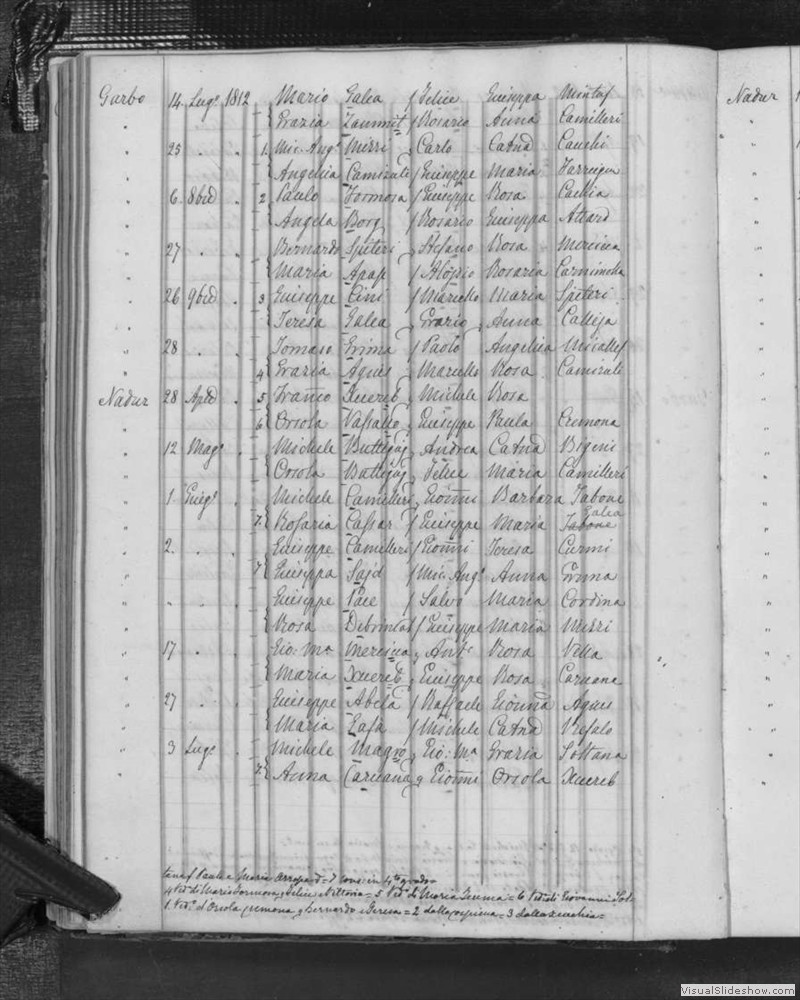 Garbo 14 Lugo 1812 Mario Galea f Felice Giuseppa Nadur
Grazia Zammit f Rosario Anna Camilleri
25 1 Mic. Ango Mizzi f Carlo Catna Cauchi
Angelica Camizuli f Giuseppe Maria Farrugia
6 8bre 2 Paulo Formosa f Giuseppe Rosa Cachia
Angela Borg f Rosario Giuseppa Attard
27 Bernardo Spiteri f Stefano Rosa Mercieca
Maria Apap f Aloysio Rosaria
26 9bre 3 Giuseppe Cini f Marcello Maria Spiteri
Teresa Galea f Grazio Anna Calleja
28 Tomaso Grima f Paolo Angelica Micallef
4 Grazia Agius f Marcello Rosa Camizuli
Nadur 28 Aple 5 Franco Xuereb f Michele Rosa
6 Orsola Vassallo f Giuseppe Paula Cremona
12 Mago Michele Buttigieg f Andrea Catna Bigeni
Orsola Buttigieg f Felice Maria Camilleri
1 Giugo Michele Camilleri f Gionni Barbara Tabone
Galea
7 Rosaria Cassar f Giuseppe Maria Tabone
2 Giuseppe Camilleri f Gionni Teresa Curmi
7 Giuseppa Sajd f Mic. Ango Anna Grima
Giuseppe Pace f Salvo Maria Cordina
Rosa Debrincat f Giuseppe Maria Mizzi
17 Gio: Ma Mercieca f Anto Rosa Vella
Maria Xuereb f Giuseppe Rosa Caruana
27 Giuseppe Abela f Raffaele Gionna Agius
Maria Zafa f Michele Catna Refalo
3 Lugo Michele Magro f Gio: Ma Grazia Soltana
7 Anna Caruana f Gionni Orsola Xuereb
Paula e Maria = 7 Cons: in 4to grado
4 Ved: di Maria Formosa, f Felice e Vittoria = 5 Vedo di Maria = 6 Ved: di Giovanni
1 Ved.a d'Orsola f Bernardo e Teresa = 2 = 3 dalla
VisualSlideshow.com